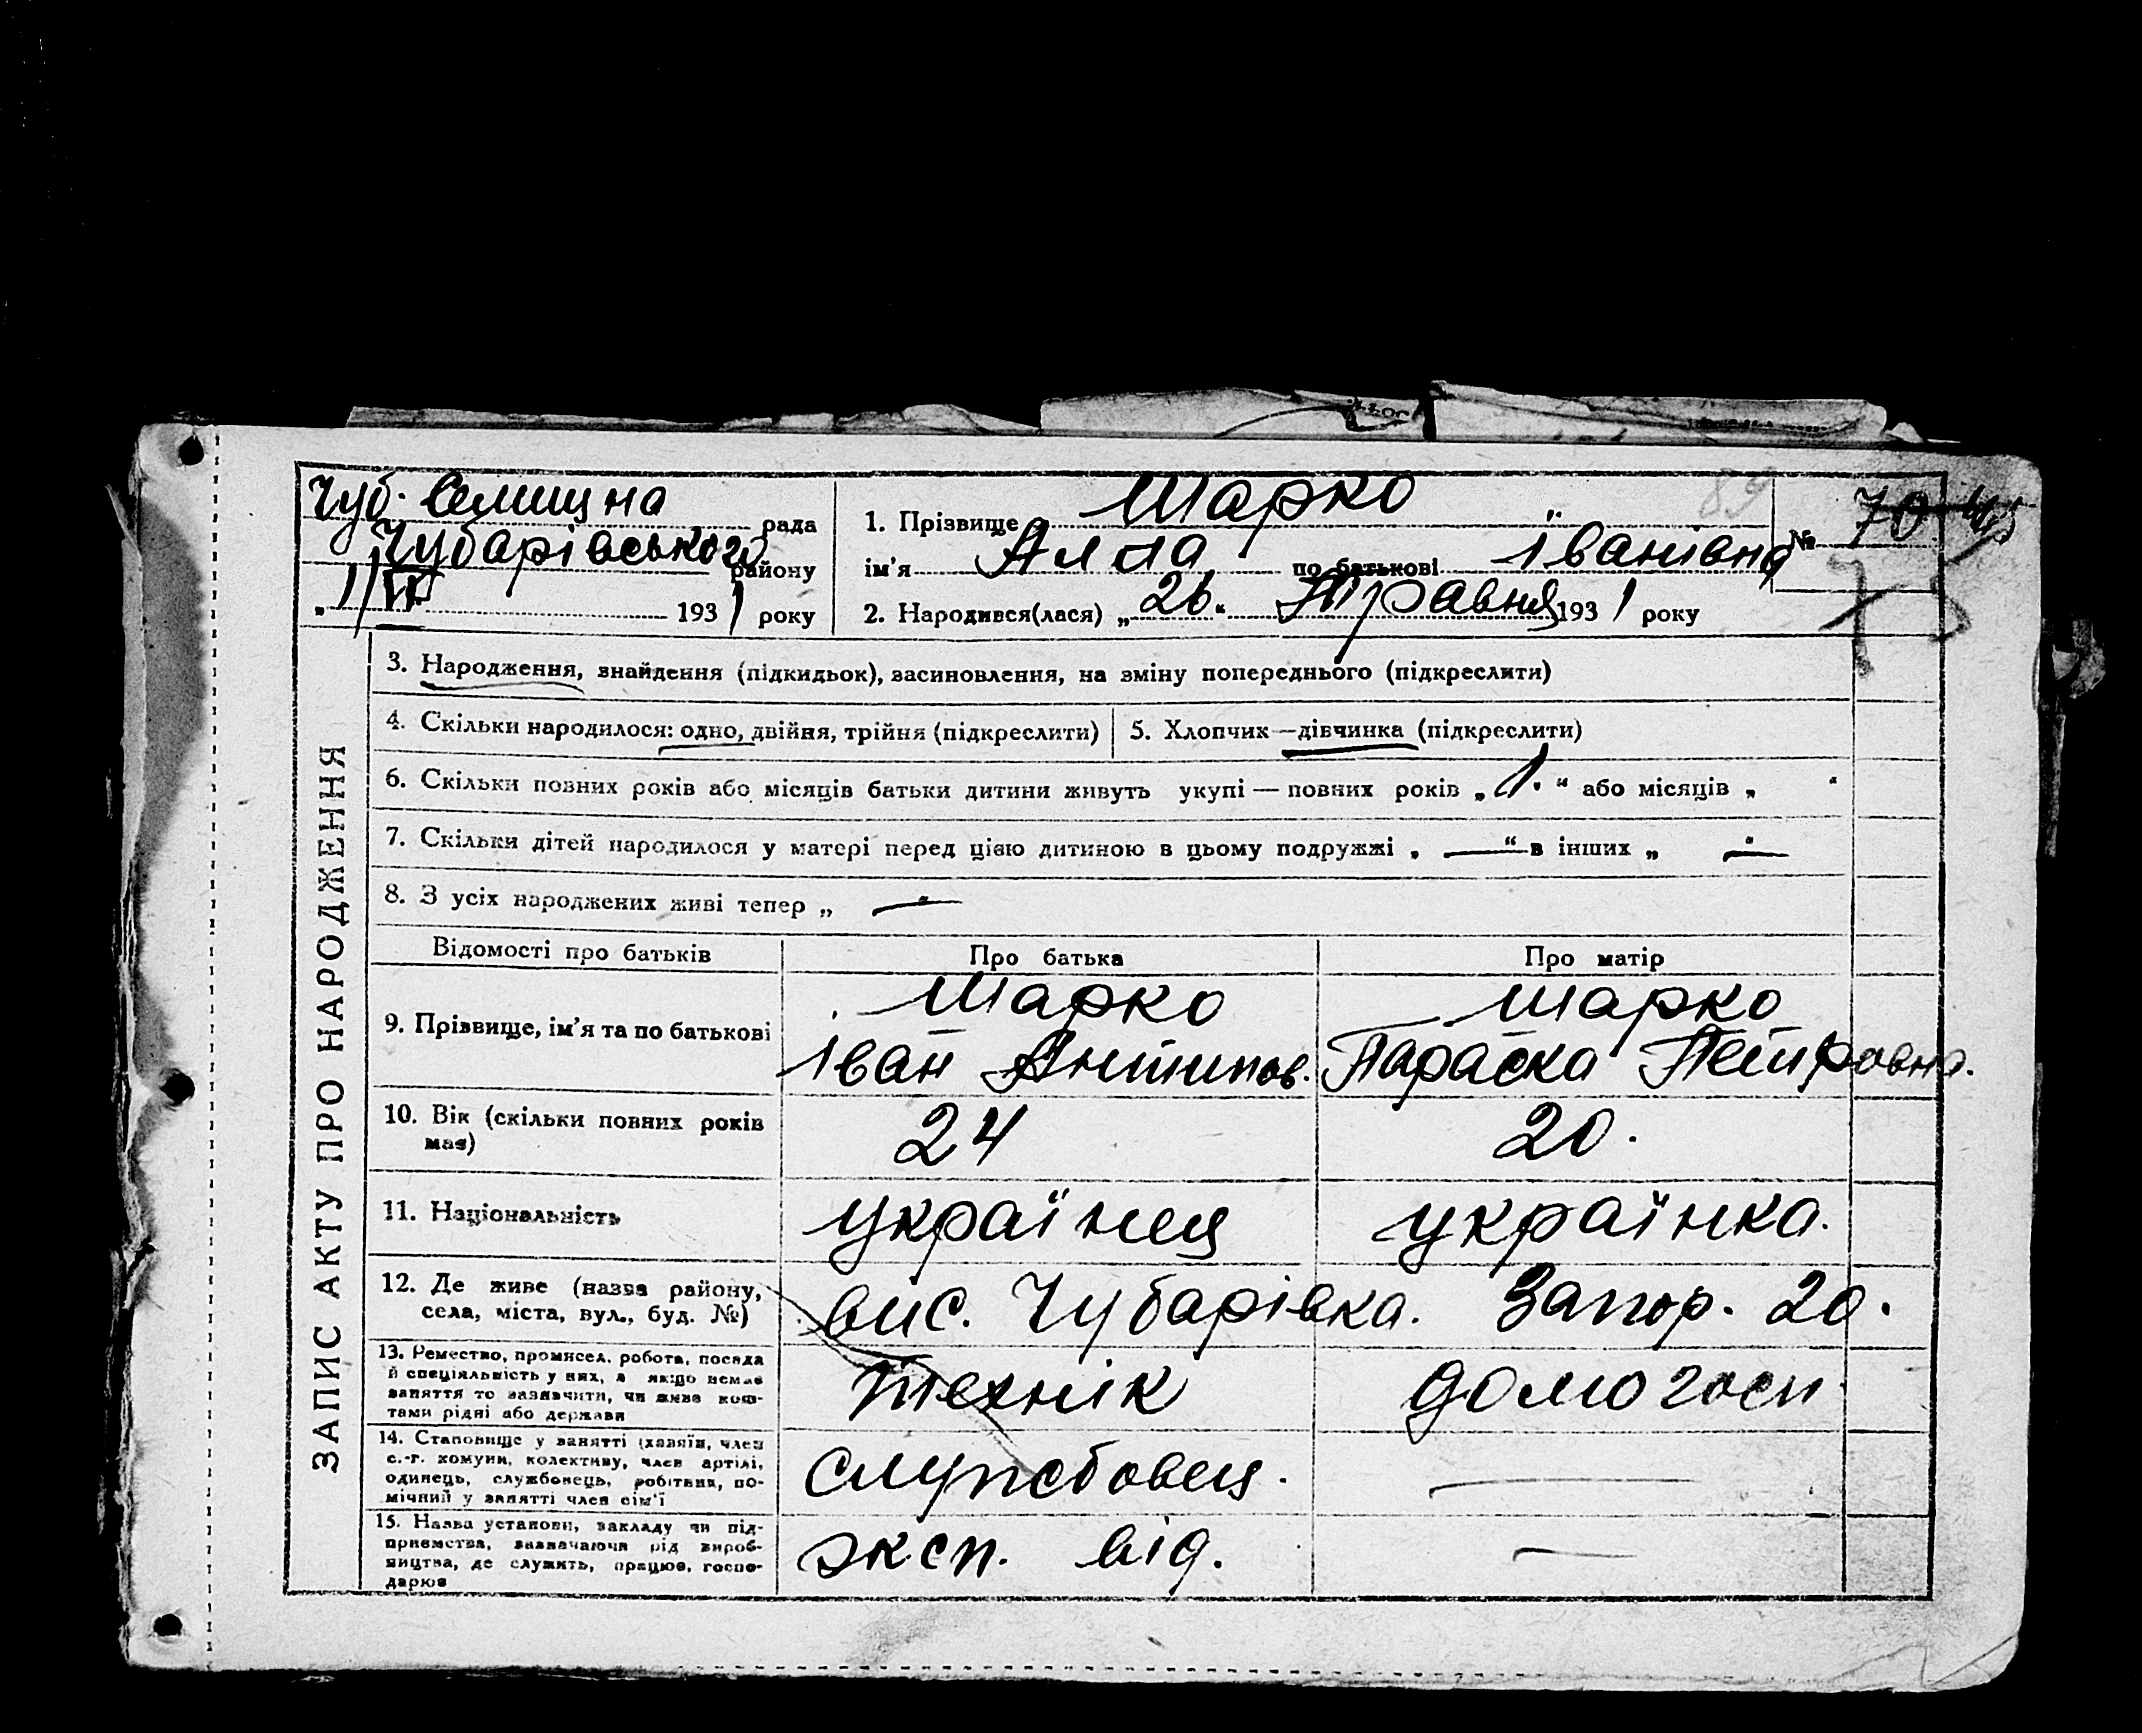 Чуб. Селищна рада
Чубарівського району
„1/VI 1931 року
1. Прізвище Шарко „
ім'я Алла по батькові Іванівна
2. Народився(лася) „26“ Травня 1931 року
89
№ 70
ЗАПИС АКТУ ПРО НАРОДЖЕННЯ
3. Народження, знайдення (підкидьок), засиновлення, на зміну попереднього (підкреслити)
4. Скільки народилося: одно, двійня, трійня (підкреслити)
5. Хлопчик—дівчинка (підкреслити)
6. Скільки повних років або місяців батьки дитини живуть укупі — повних років „1.“ або місяців „ “
7. Скільки дітей народилося у матері перед цією дитиною в цьому подружжі „ — “ в інших „ — “
8. З усіх народжених живі тепер „ — “
Відомості про батьків Про батька Про матір
9. Прізвище, ім'я та по батькові
Шарко
Іван Антипов.
Шарко
Параска Петровна.
10. Вік (скільки повних років
має)
24
20.
11. Національність
українец
українка.
12. Де живе (назва району,
села, міста, вул., буд. №)
вис. Чубарівка. Запор. 20.
13. Ремество, промисел, робота, посада
й спеціяльність у них, а якщо немає
заняття то зазначити, чи живе кош-
тами рідні або держави
технік
домогосп.
14. Становище у занятті (хазяїн, член
с.-г. комуни, колективу, член артілі,
одинець, службовець, робітник, по-
мічний у занятті член сім'ї
службовец.
—
15. Назва установи, закладу чи під-
приємства, зазначаючи рід вироб-
ництва, де служить, працює, госпо-
дарює
эксп. від.
—